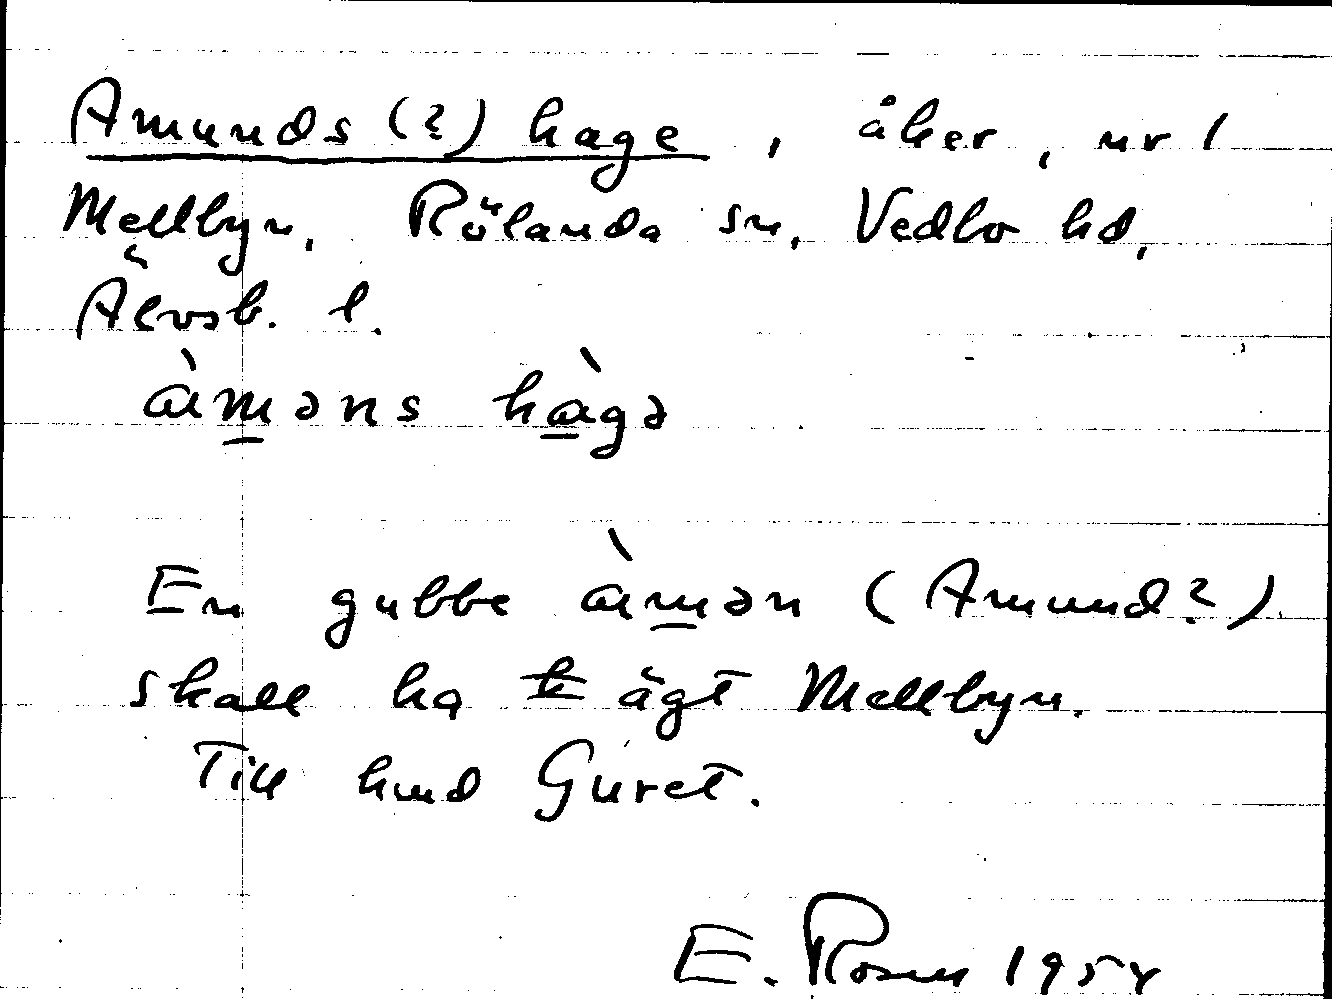 Amunds (?) hage, åker, nr 1
Mellbyn, Rölanda sn, Vedbo hd,
Älvsb. l.
àməns hàgə
En gubbe àmən (Amund?)
skall ha ägt Mellbyn.
Till hmd Guret.
E. Rosen 1954